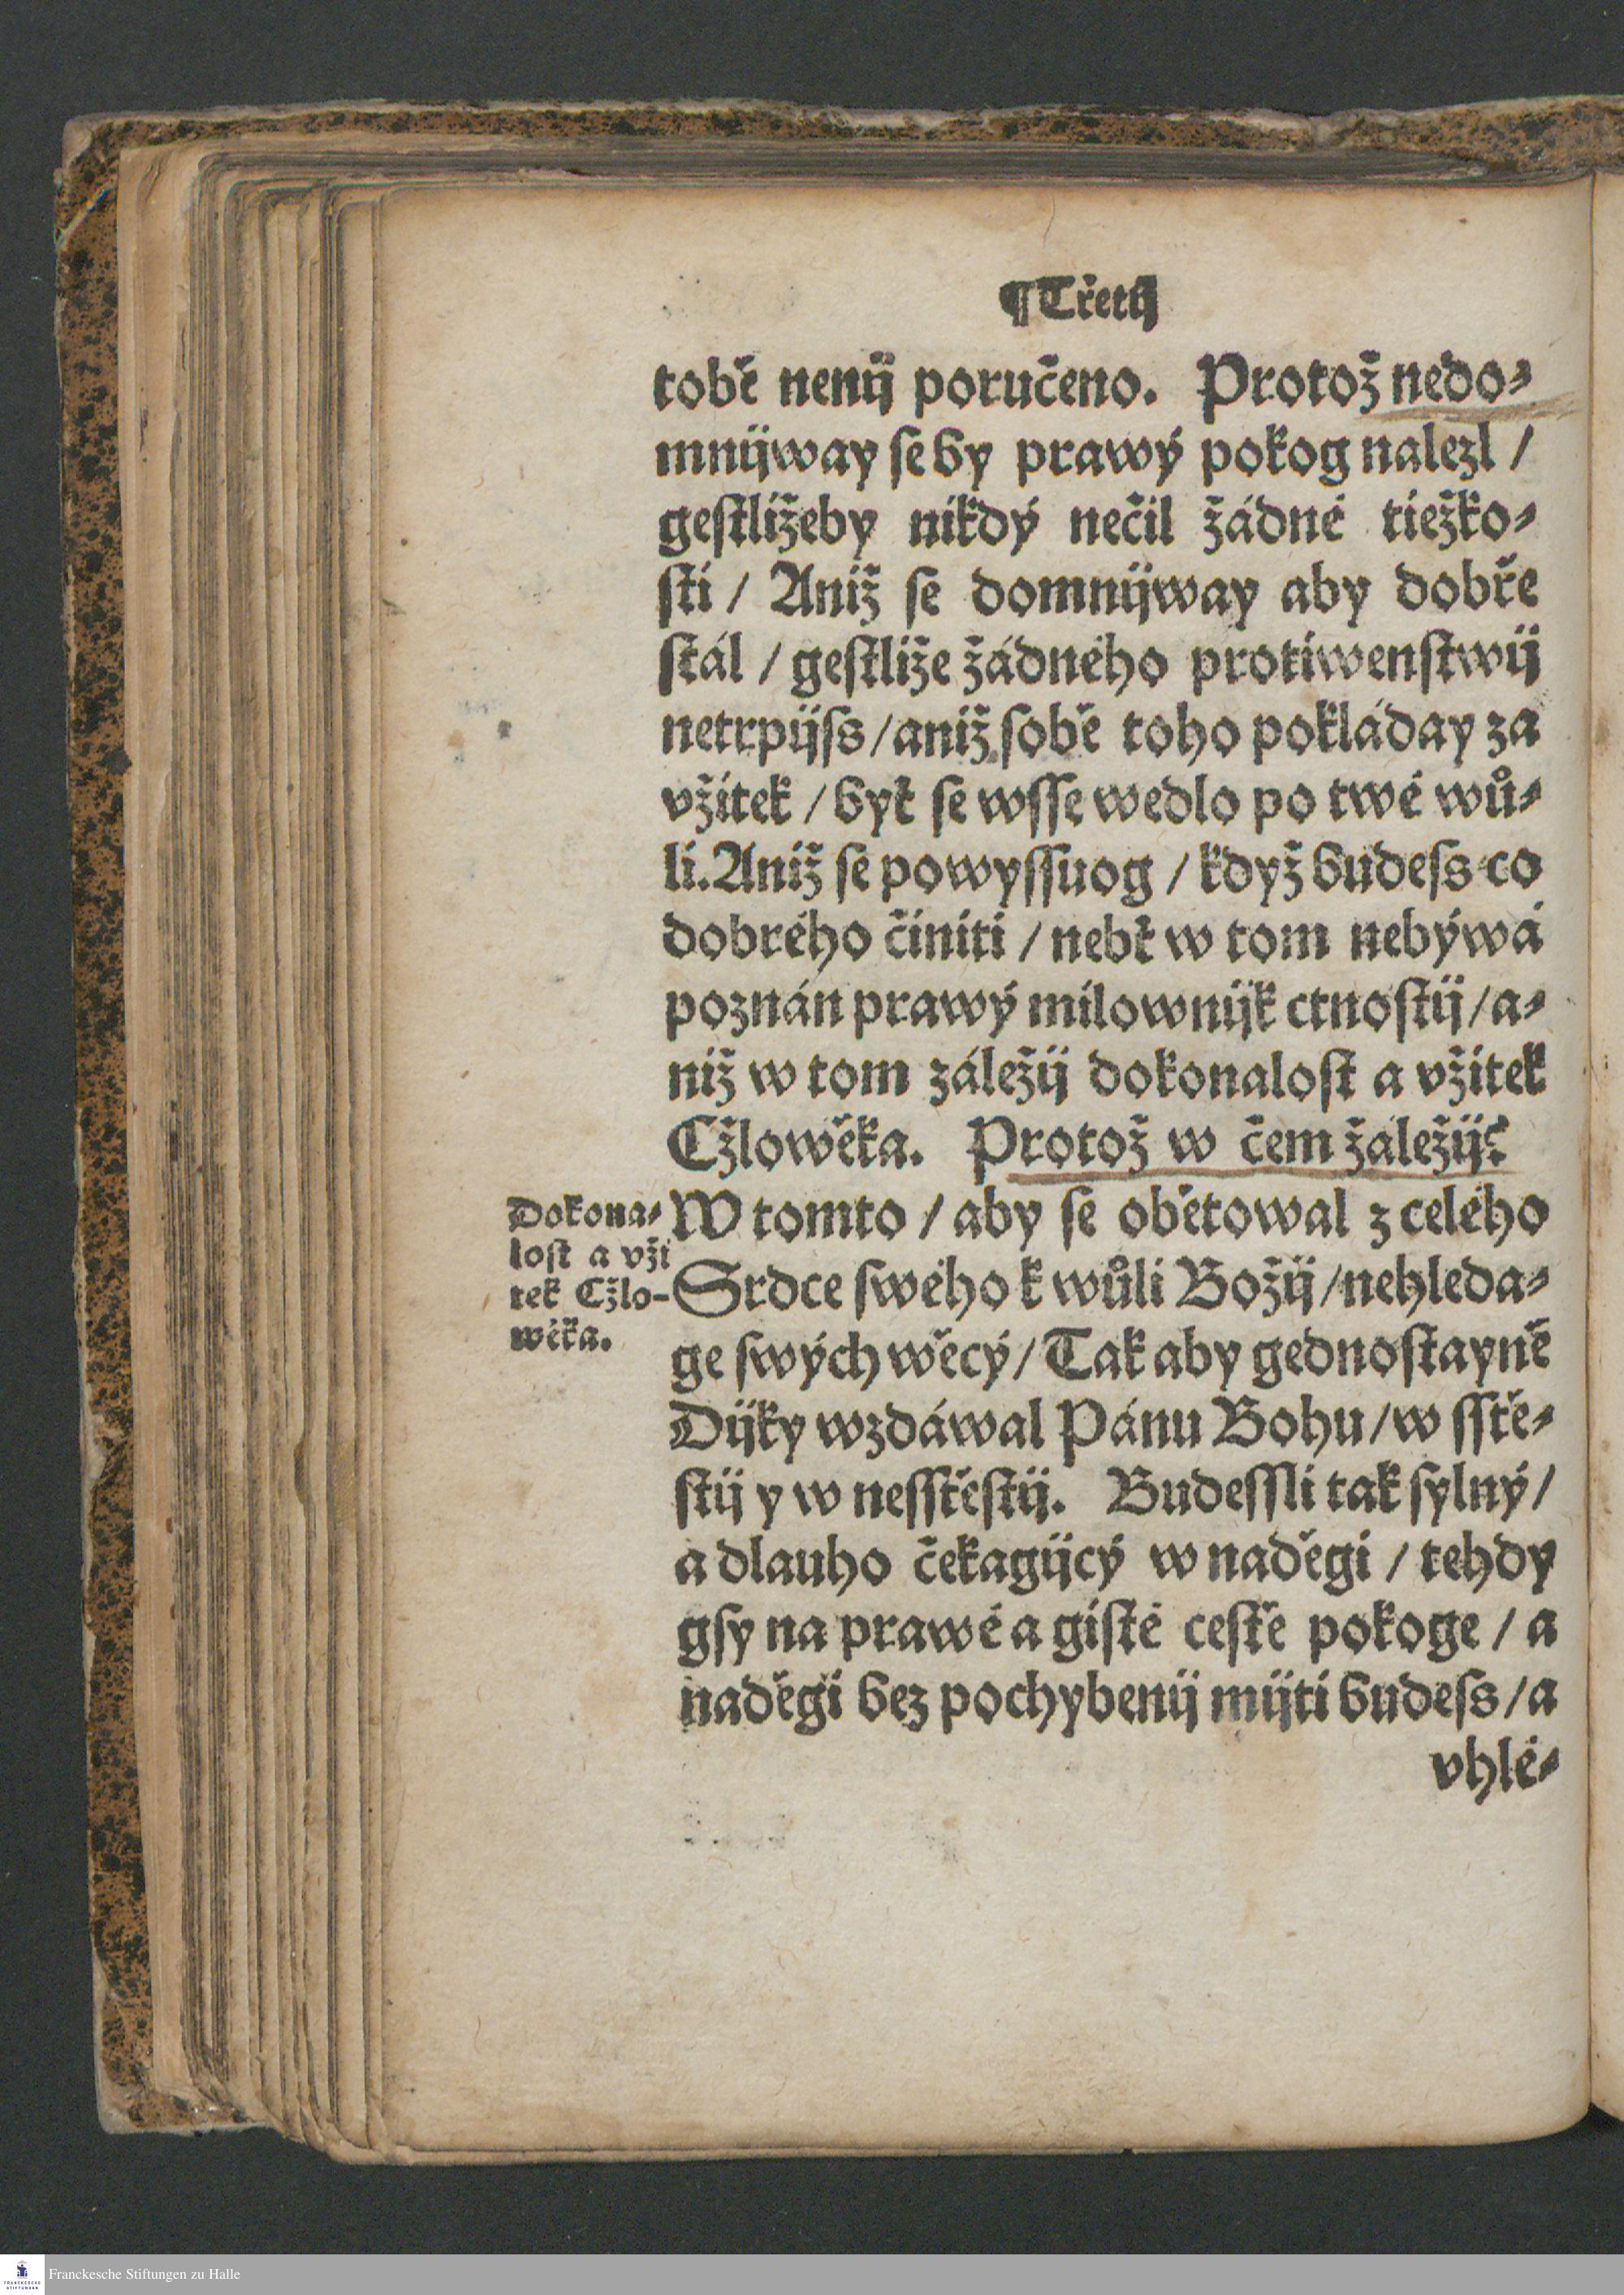 ¶ Třetij
tobě nenij poručeno. Protož nedo⸗
mnijway se by prawý pokog nalezl /
gestližeby nikdý nečil žádné tiežko⸗
sti / Aniž se domnijway aby dobře
stál / gestliže žádného protiwenstwij
netrpijss / aniž sobě toho pokláday za
vžitek / byť se wsse wedlo po twé wů⸗
li. Aniž se powyssuog / když budess co
dobrého činiti / nebť w tom nebýwá
poznán prawý milownijk ctnostij / a⸗
niž w tom záležij dokonalost a vžitek
Cžlowěka. Protož w čem žáležij?
W tomto / aby se obětowal z celého
Srdce swého k wůli Božij / nehleda⸗
ge swých wěcý / Tak aby gednostayně
Dijky wzdáwal Pánu Bohu / w sstě⸗
stij y w nesstěstij. Budessli tak sylný /
a dlauho čekagijcý w naděgi / tehdy
gsy na prawé a gisté cestě pokoge / a
naděgi bez pochybenij mijti budess / a
vhlé⸗
Dokona⸗
lost a vži
tek Cžlo-
wěka.
Franckesche Stiftungen zu Halle